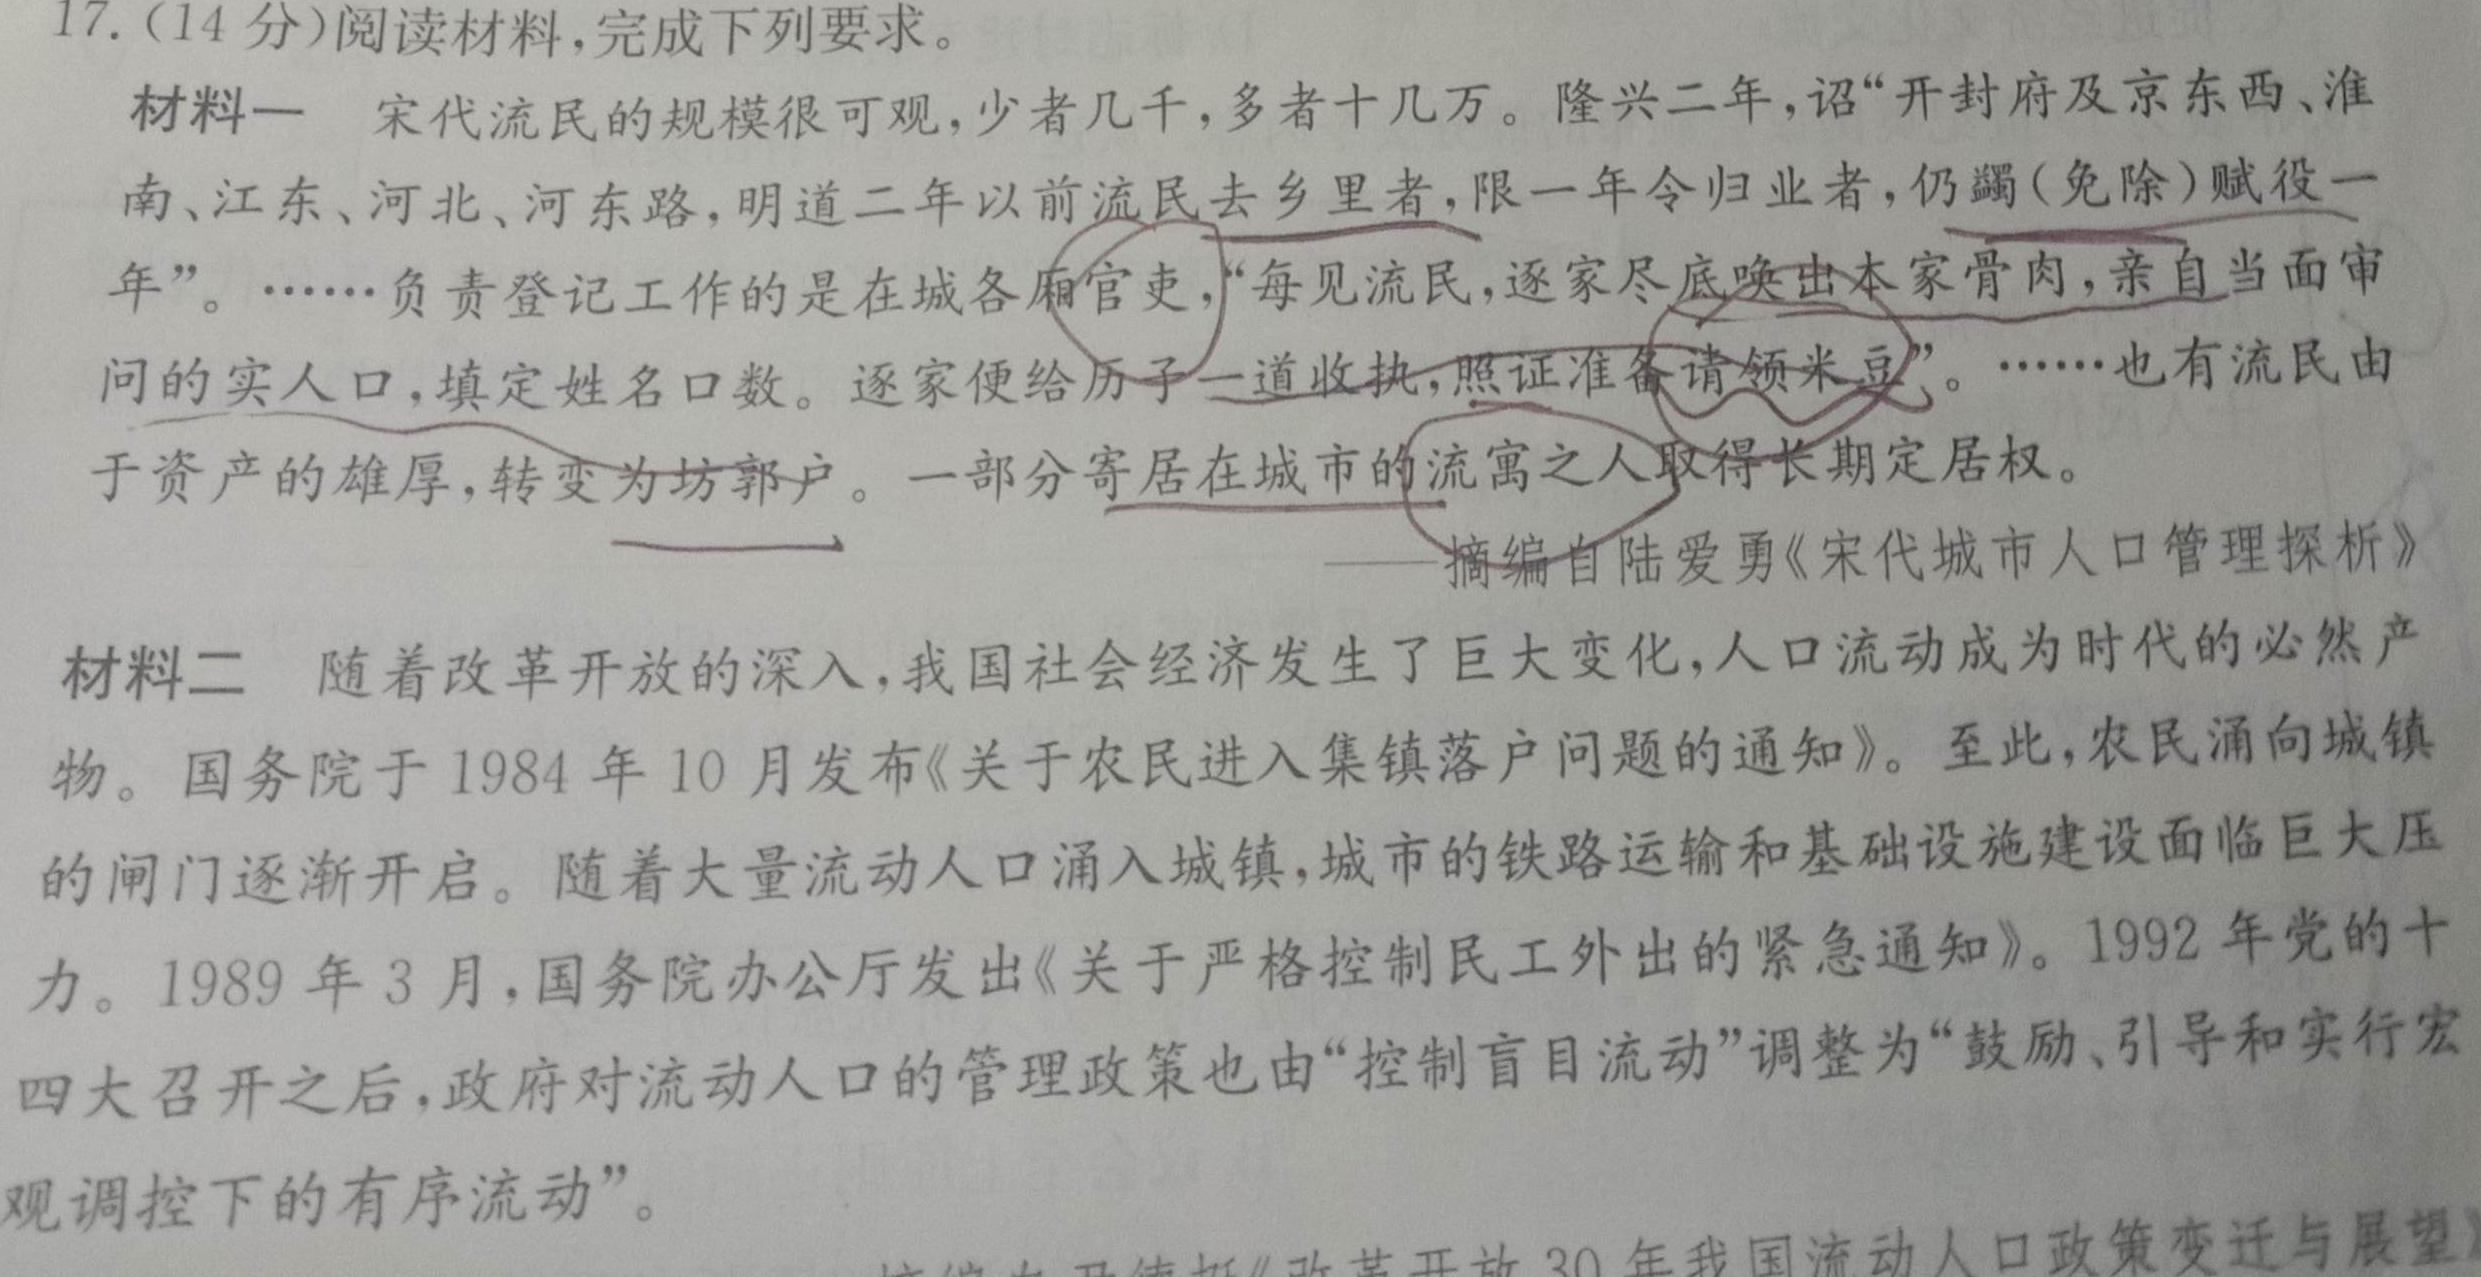 17.(14 分)阅读材料,完成下列要求。
材料一 宋代流民的规模很可观,少者几千,多者十几万。隆兴二年,诏“开封府及京东西、淮
南、江东、河北、河东路,明道二年以前流民去乡里者,限一年令归业者,仍蠲(免除)赋役一
年”。……负责登记工作的是在城各厢官吏,“每见流民,逐家尽底唤出本家骨肉,亲自当面审
问的实人口,填定姓名口数。逐家便给历子一道收执,照证准备请领米豆”。……也有流民由
于资产的雄厚,转变为坊郭户。一部分寄居在城市的流寓之人取得长期定居权。
——摘编自陆爱勇《宋代城市人口管理探析》
材料二 随着改革开放的深入,我国社会经济发生了巨大变化,人口流动成为时代的必然产
物。国务院于 1984 年 10 月发布《关于农民进入集镇落户问题的通知》。至此,农民涌向城镇
的闸门逐渐开启。随着大量流动人口涌入城镇,城市的铁路运输和基础设施建设面临巨大压
力。1989 年 3 月,国务院办公厅发出《关于严格控制民工外出的紧急通知》。1992 年党的十
四大召开之后,政府对流动人口的管理政策也由“控制盲目流动”调整为“鼓励、引导和实行宏
观调控下的有序流动”。
《改革开放 30 年我国流动人口政策变迁与展望》